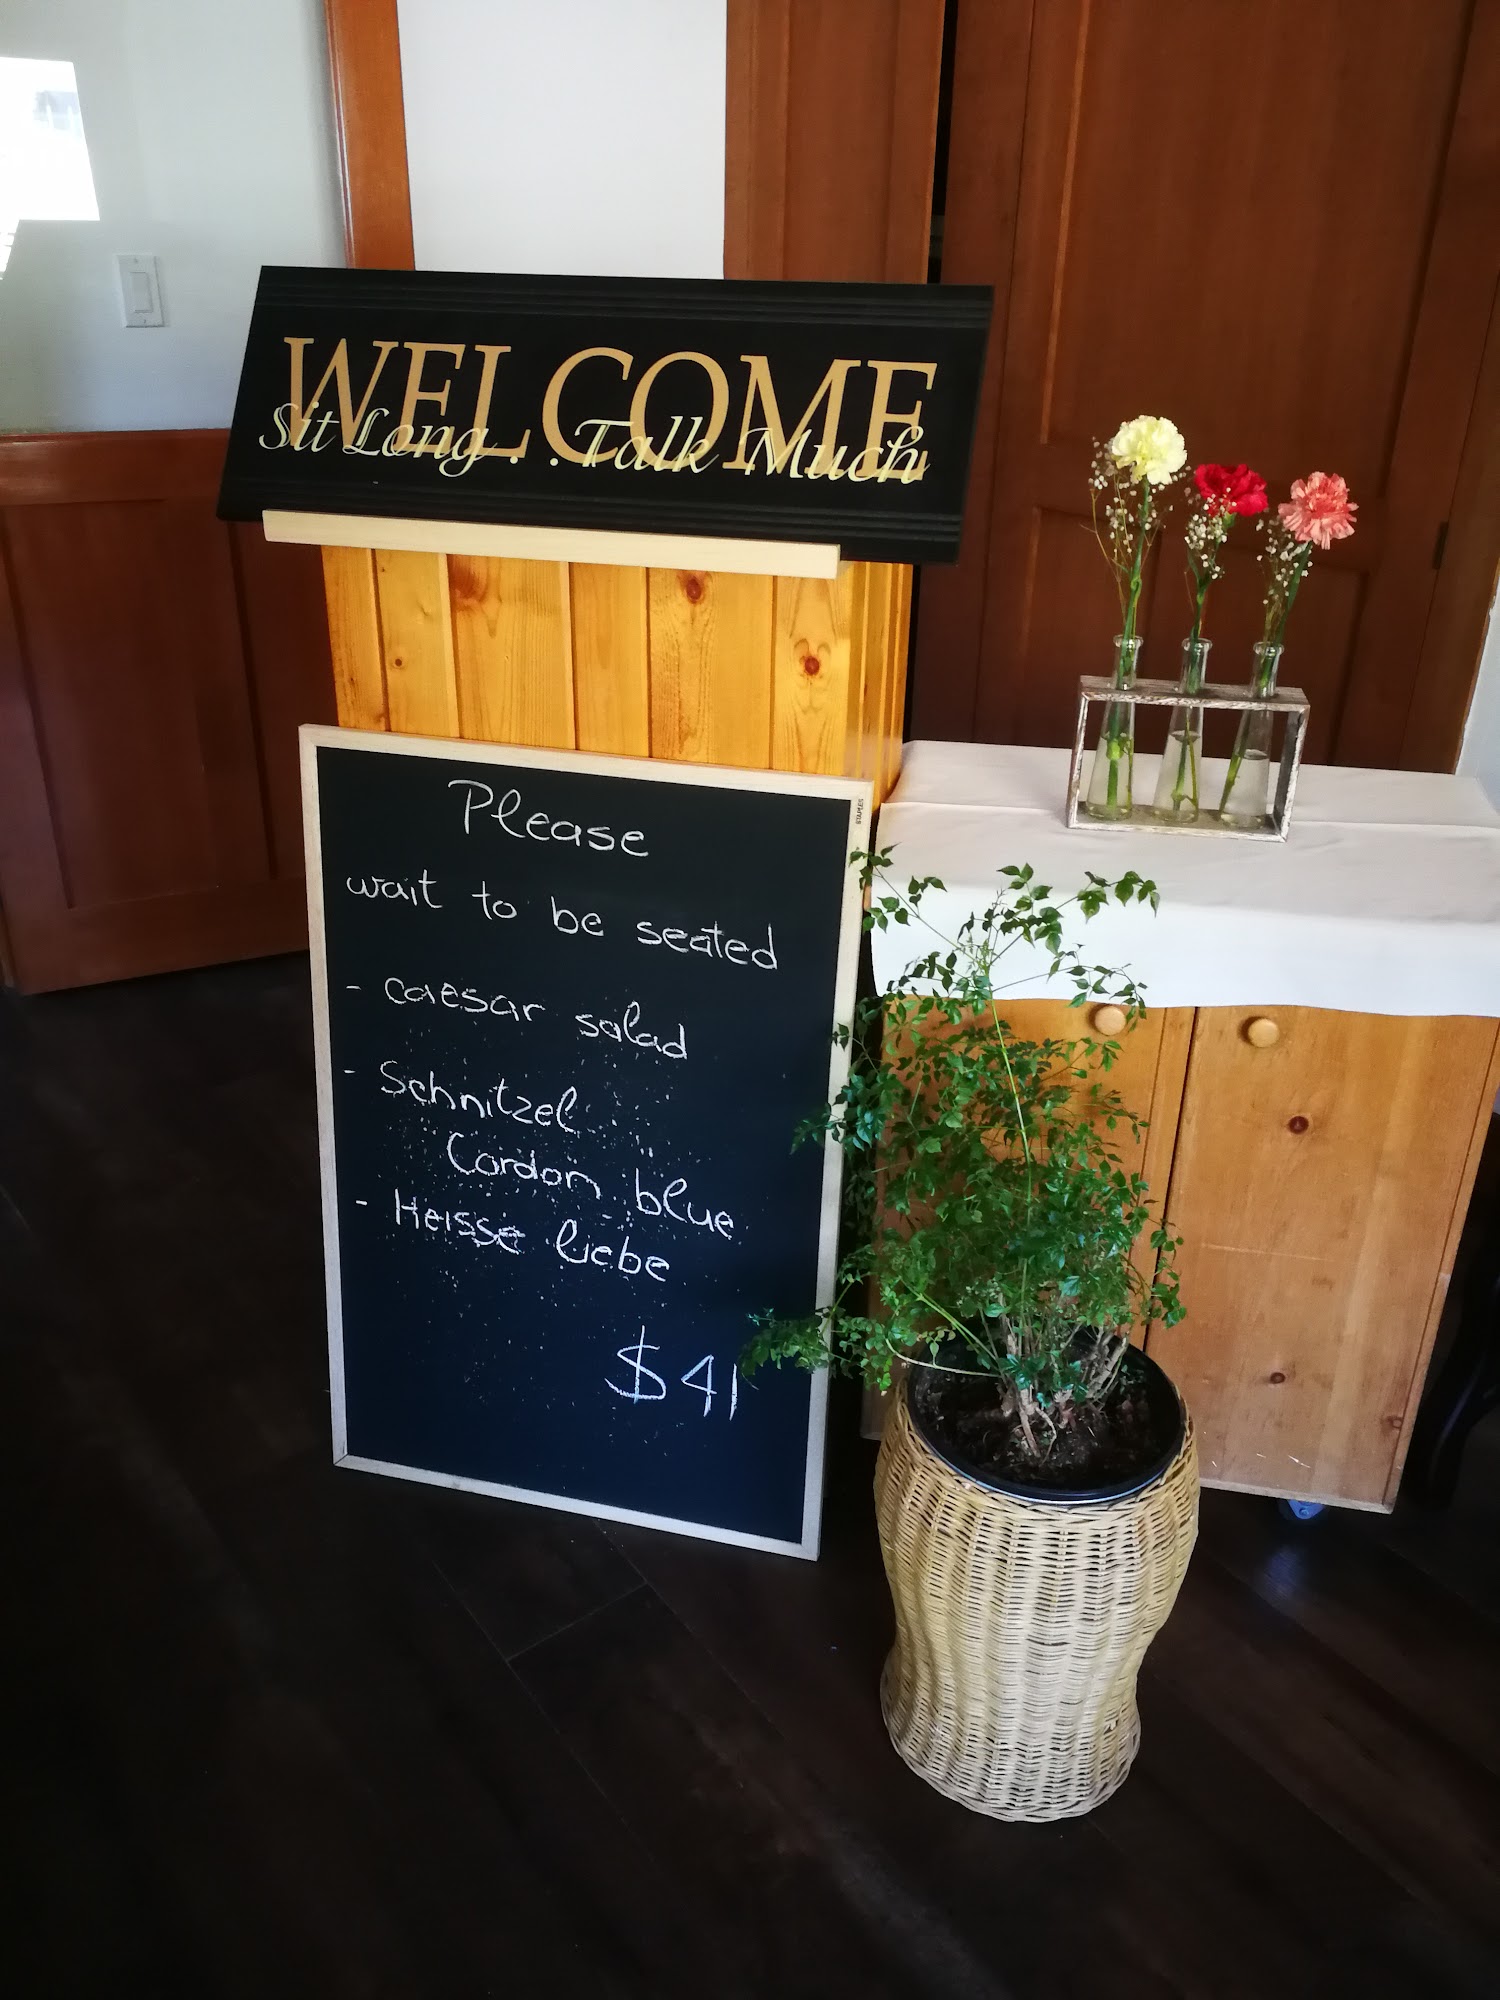 WELCOME
Sit Long...Talk Much
STAPLES
Please
wait to be seated
- caesar salad
- Schnitzel
Cordon blue
- Heisse liebe
$41